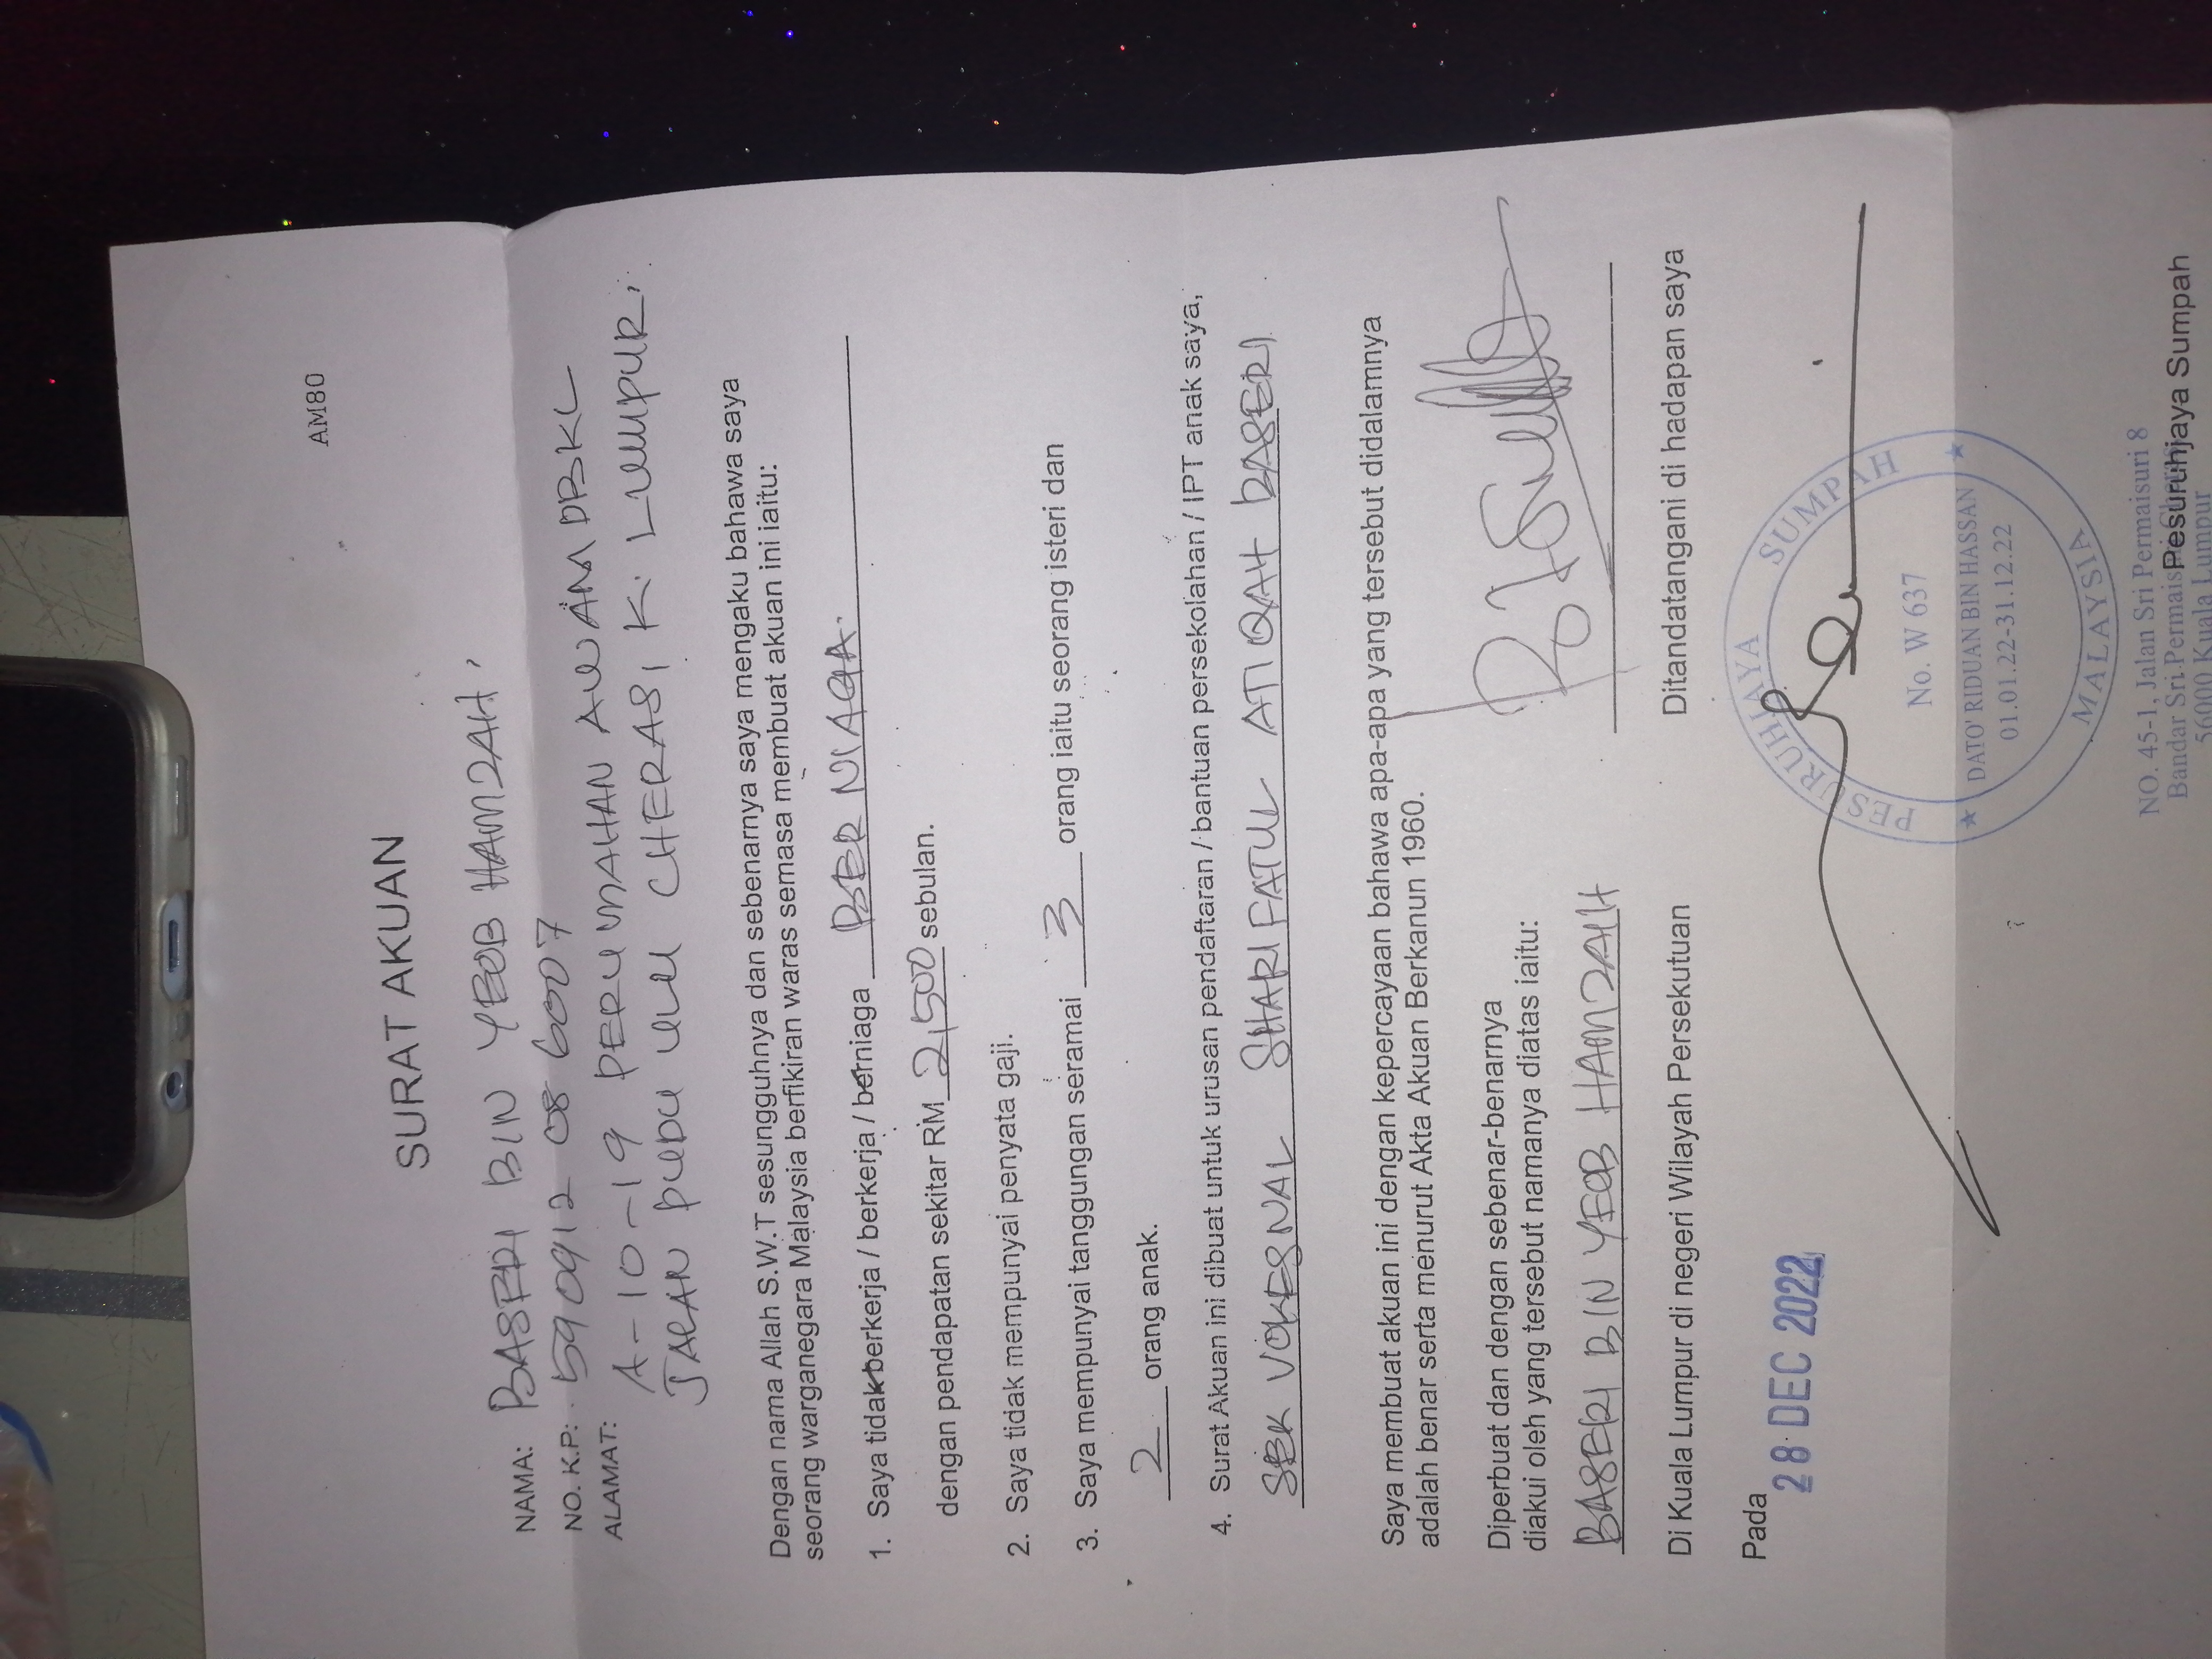 AM80
SURAT AKUAN
NAMA: BASERI BIN YEOB HAMZAH,
NO. K.P.: 590912 08 6007
ALAMAT: A-10-19 PERUMAHAN AWAM DBKL
JALAN PUDU ULU CHERAS, K. LUMPUR,
Dengan nama Allah S.W.T sesungguhnya dan sebenarnya saya mengaku bahawa saya
seorang warganegara Malaysia berfikiran waras semasa membuat akuan ini iaitu:
1. Saya tidak berkerja / berkerja / berniaga BER NIAGA.
dengan pendapatan sekitar RM 2,500 sebulan.
2. Saya tidak mempunyai penyata gaji.
3. Saya mempunyai tanggungan seramai 3 orang iaitu seorang isteri dan
2 orang anak.
4. Surat Akuan ini dibuat untuk urusan pendaftaran / bantuan persekolahan / IPT anak saya,
SEK VOKESNAL SHARIFATUL ATIQAH BASERI
Saya membuat akuan ini dengan kepercayaan bahawa apa-apa yang tersebut didalamnya
adalah benar serta menurut Akta Akuan Berkanun 1960.
Diperbuat dan dengan sebenar-benarnya
diakui oleh yang tersebut namanya diatas iaitu:
BASERI BIN YEOB HAMZAH
Di Kuala Lumpur di negeri Wilayah Persekutuan
Ditandatangani di hadapan saya
Pada
28 DEC 2022
PESURUHJAYA SUMPAH
No. W 637
DATO' RIDUAN BIN HASSAN
01.01.22-31.12.22
MALAYSIA
NO. 45-1, Jalan Sri Permaisuri 8
Bandar Sri Permaisuri
Pesuruhjaya Sumpah
56000 Kuala Lumpur